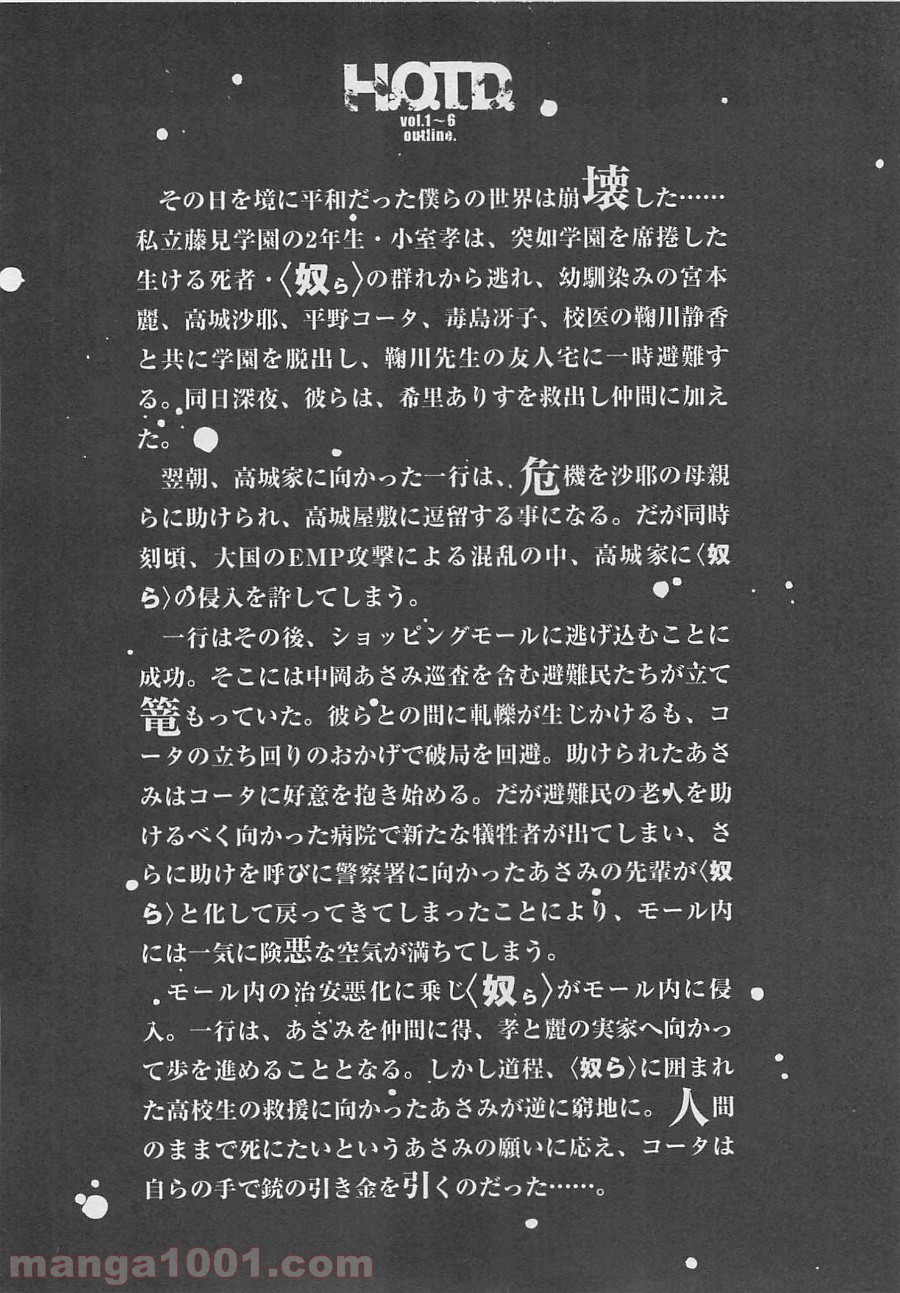 H.O.T.D.
vol.1～6
outline.
その日を境に平和だった僕らの世界は崩壊した……
私立藤見学園の2年生・小室孝は、突如学園を席捲した
生ける死者・〈奴ら〉の群れから逃れ、幼馴染みの宮本
麗、高城沙耶、平野コータ、毒島冴子、校医の鞠川静香
と共に学園を脱出し、鞠川先生の友人宅に一時避難す
る。同日深夜、彼らは、希里ありすを救出し仲間に加え
た。
翌朝、高城家に向かった一行は、危機を沙耶の母親
らに助けられ、高城屋敷に逗留する事になる。だが同時
刻頃、大国のEMP攻撃による混乱の中、高城家に〈奴
ら〉の侵入を許してしまう。
一行はその後、ショッピングモールに逃げ込むことに
成功。そこには中岡あさみ巡査を含む避難民たちが立て
篭もっていた。彼らとの間に軋轢が生じかけるも、コ
ータの立ち回りのおかげで破局を回避。助けられたあさ
みはコータに好意を抱き始める。だが避難民の老人を助
けるべく向かった病院で新たな犠牲者が出てしまい、さ
らに助けを呼びに警察署に向かったあさみの先輩が〈奴
ら〉と化して戻ってきてしまったことにより、モール内
には一気に険悪な空気が満ちてしまう。
モール内の治安悪化に乗じ〈奴ら〉がモール内に侵
入。一行は、あさみを仲間に得、孝と麗の実家へ向かっ
て歩を進めることとなる。しかし道程、〈奴ら〉に囲まれ
た高校生の救援に向かったあさみが逆に窮地に。人間
のままで死にたいというあさみの願いに応え、コータは
自らの手で銃の引き金を引くのだった……。
manga1001.com